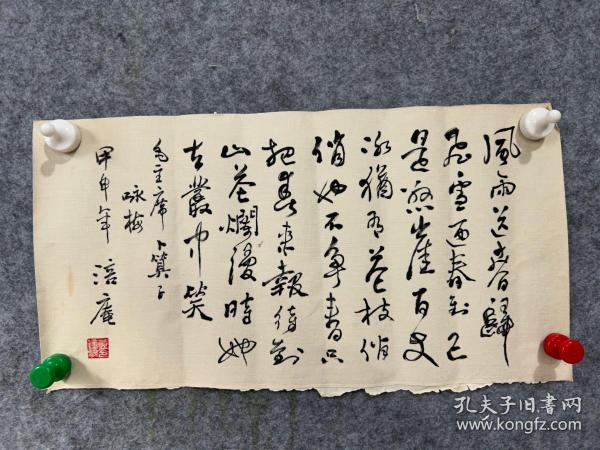 風雨送春歸
飛雪迎春到已
是懸崖百丈
冰猶有花枝俏
俏也不爭春只
把春來報待到
山花爛漫時她
在叢中笑
毛主席卜算子
咏梅
甲申年 涪庵
孔夫子旧書网
www.kongfz.com